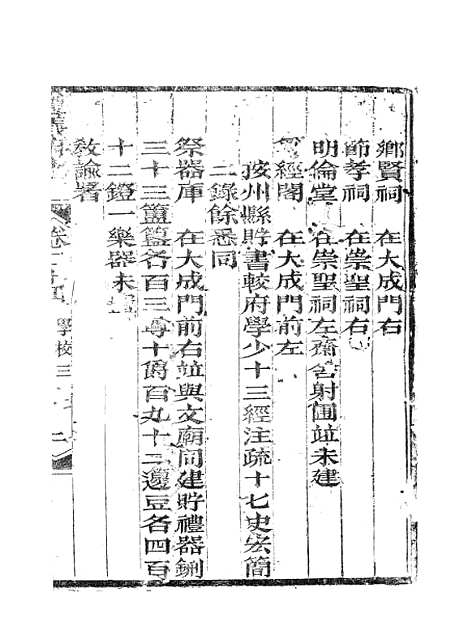 鄉賢祠 在大成門右
節孝祠 在崇聖祠右
明倫堂 在崇聖祠左齋舍射圃並未建
經閣 在大成門前左
按州縣貯書較府學少十三經注疏十七史宏簡
二錄餘悉同
祭器庫 在大成門前右並與文廟同建貯禮器鉶
三十三簠簋各百三尊十爵百九十二籩豆各四百
十二鐙一樂器未
教諭署
學校三